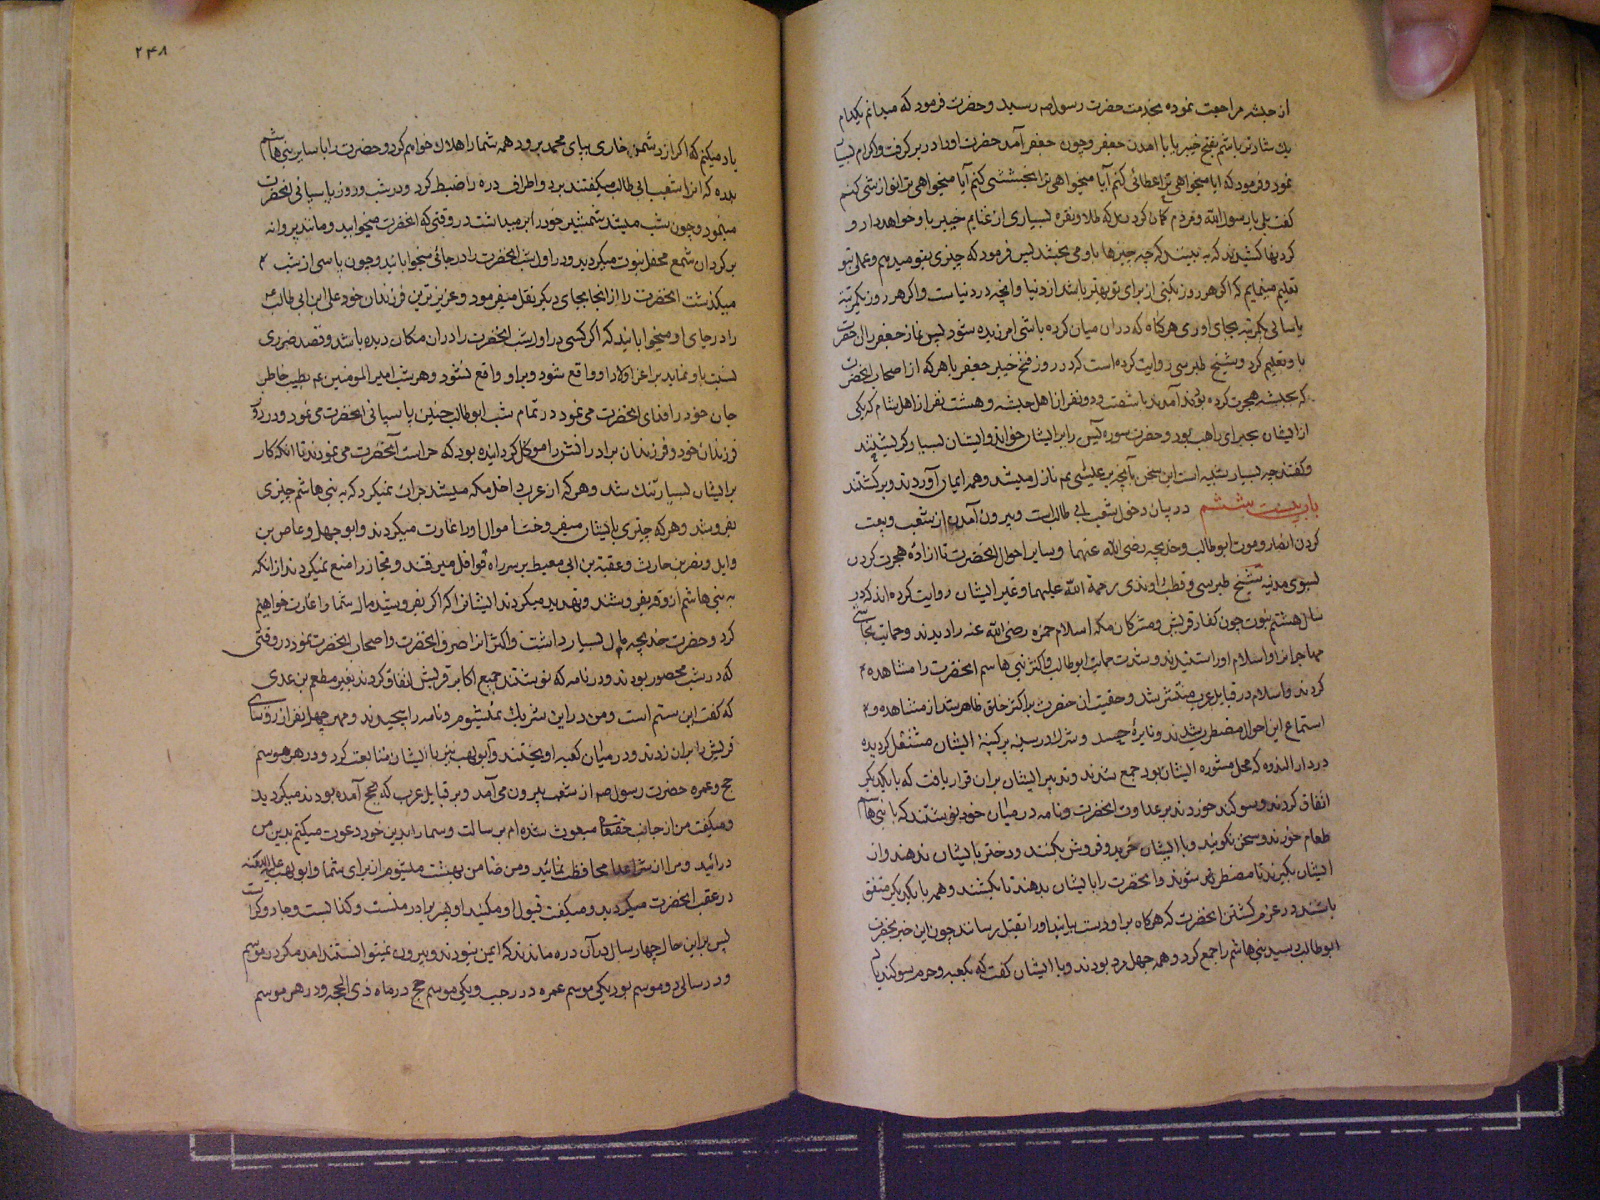 از حبشه مراجعت نموده بخدمت حضرت رسول صه رسید و حضرت فرمود که نمیدانم بکدام
یک شادتر باشم بفتح خیبر یا با امدن جعفر و چون جعفر آمد حضرت او را در بر گرفت و اکرام بسیار
نمود و فرمود که ایا میخواهی ترا عطائی کنم آیا میخواهی ترا بخششی کنم آیا میخواهی ترا نوازشی کنم
گفت بلی یا رسول الله و مردم گمان کردند که طلا و نقره بسیاری از غنایم خیبر باو خواهد داد و
گردنها کشیدند که به بینند که چه چیزها باو می بخشد پس فرمود که چیزی بتو میدهم و عملی بتو
تعلیم مینمایم که اگر هر روز بکنی از برای تو بهتر باشد از دنیا و انچه در دنیا ست و اگر هر روز یکمرتبه
یا سالی یکمرتبه بجای اوری هر گناه که دران میان کرده باشی امرزیده شود پس نماز جعفر را ان حضرت
باو تعلیم کرد و شیخ طبرسی روایت کرده است که در روز فتح خیبر جعفر با هر که از اصحاب انحضرت
که بحبشه هجرت کرده بودند آمدند با شصت و دو نفر از اهل حبشه و هشت نفر از اهل شام که یکی
از ایشان بحیرای راهب بود و حضرت سوره یس را بر ایشان خواند و ایشان بسیار گریستند
و گفتند چه بسیار شبیه است این سخن بآنچه بر عیسی عم نازل میشد و همه ایمان آوردند و برگشتند
باب بیست ششم در بیان دخول شعب ابی طالب است و بیرون آمدن از شعب و بیعت
کردن انصار و موت ابو طالب و خدیجه رضی الله عنهما و سایر احوال انحضرت تا اراده هجرت کردن
بسوی مدینه شیخ طبرسی و قطب راوندی رحمة الله علیهما و غیر ایشان روایت کرده اند که در
سال هشتم نبوت چون کفار قریش و مشرکان مکه اسلام حمزه رضی الله عنه را دیدند و حمایت نجاشی
مهاجرانرا و اسلام اورا شنیدند و شدت حمایت ابو طالب و اکثر بنی هاشم انحضرت را مشاهده
کردند و اسلام در قبایل عرب منتشر شد و حقیت ان حضرت بر اکثر خلق ظاهر شد از مشاهده و
استماع این احوال مضطرب شدند و نایرهٔ حسد و شرک در سینه پر کینهٔ ایشان مشتعل گردیده
در دار الندوه که محل مشوره ایشان بود جمع شدند و تدبیر ایشان بران قرار یافت که با یکدیگر
اتفاق کردند و سوگند خوردند بر عداوت انحضرت و نامه در میان خود نوشتند که با بنی هاشم
طعام خورند و سخن نگویند و با ایشان خرید و فروش نکنند و دختر بایشان ندهند و از
ایشان نگیرند تا مضطر شوند و انحضرت را بایشان بدهند تا بکشند و همه با یکدیگر متفق
باشند در عزم کشتن انحضرت که هرگاه بر او دست یابند اورا بقتل رسانند چون این خبر بحضرت
ابو طالب رسید بنی هاشم را جمع کرد و همه چهل مرد بودند و با ایشان گفت که بکعبه و حرم سوگند
۲۴۸
یاد میکنم که اگر از دشمن خاری بپای محمد برود همه شما را هلاک خواهم کرد و حضرت را با سایر بنی هاشم
بدره که انرا شعب ابی طالب میگفتند برد و اطراف دره را ضبط کرد و در شب و روز پاسبانی انحضرت
مینمود و چون شب میشد شمشیر خود را بر میداشت در وقتی که انحضرت میخوابید و مانند پروانه
بر گرد ان شمع محفل نبوت میگردید و در اول شب انحضرت را در جائی میخوابانید و چون پاسی از شب
میگذشت انحضرت را از انجا بجای دیگر نقل میفرمود و عزیز ترین فرزندان خود علی ابن ابی طالب
را در جای او میخوابانید که اگر کسی در اول شب انحضرت را دران مکان دیده باشد و قصد ضرری
نسبت باو نماید بر اعز اولاد او واقع شود و بر او واقع نشود و هر شب امیر المومنین عم بطیب خاطر
جان خود را فدای انحضرت می نمود در تمام شب ابو طالب چنین پاسبانی انحضرت می نمود و در روز
فرزندان خود و فرزندان برادرانش را موکل گردانیده بود که حراست آنحضرت می نمودند تا انکه کار
بر ایشان بسیار تنگ شد و هر که از عرب داخل مکه میشد جرات نمیکرد که به بنی هاشم چیزی
بفروشد و هر که چیزی بایشان میفروخت اموال اورا غارت میکردند و ابو جهل و عاص بن
وایل و نضر بن حارث و عقبة بن ابی معیط بر سر راه قوافل میرفتند و تجار را منع میکردند از انکه
به بنی هاشم اذوقه بفروشند و تهدید میکردند ایشانرا که اگر بفروشید مال شما را غارت خواهیم
کرد و حضرت خدیجه مال بسیار داشت و اکثر انرا صرف انحضرت و اصحاب انحضرت نمود در وقتی
که در شعب محصور بودند و در نامه که نوشتند جمیع اکابر قریش اتفاق کردند بغیر مطعم بن عدی
که گفت این ستم است و من در این شریک نمیشوم و نامه را پیچیدند و مهر چهل نفر از روسای
قریش را بران زدند و در میان کعبه اویختند و ابو لهب نیز با ایشان متابعت کرد و در هر موسم
حج و عمره حضرت رسول صه از شعب بیرون می آمد و بر قبایل عرب که بحج آمده بودند میگردید
و میگفت من از جانب حقتعالی مبعوث شده ام برسالت و شما را بدین خود دعوت میکنم بدین من
در ائید و مرا از شر اعدا محافظت نمائید و من ضامن بهشت میشوم از برای شما و ابو لهب علیه اللعنة
در عقب انحضرت میگردید و میگفت قبول او مکنید او پسر برادر منست و کذابست و جادوگر است
پس بر این حال چهار سال در آن دره ماندند که ایمن نبودند و بیرون نمیتوانستند امد مگر در موسم
و در سالی دو موسم بود یکی موسم عمره در رجب و یکی موسم حج در ماه ذی الحجه و در هر موسم